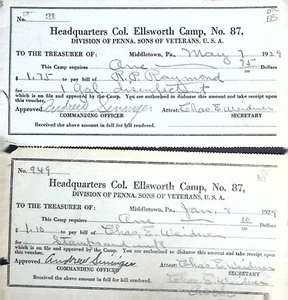 No. 21
Headquarters Col. Ellsworth Camp, No. 87,
DIVISION OF PENNA. SONS OF VETERANS, U. S. A.
To the TREASURER of Middletown, Pa. May 7 1929
This Camp requires One 75 Dollars
$ 1.75 to pay bill of R.P. Raymond
for 1 Gal disinfectant
which is on file and approved by the Camp. You are authorized to disburse this amount and take receipt this voucher.
Andrew Seiniger Attest: Chas. E. Weidner
COMMANDING OFFICER SECRETARY
Received the above amount in full for bill rendered.
No. 949
Headquarters Col. Ellsworth Camp, No. 87,
DIVISION OF PENNA. SONS OF VETERANS, U. S. A.
To the TREASURER of Middletown, Pa., Jan. 8 1929
This Camp requires One 10 Dollars
$ 1.10 to pay bill of Chas. E. Weidner
for Stamps and ink
which is on file and approved by the Camp. You are authorized to disburse this amount and take receipt this voucher.
Andrew Seiniger Attest: Chas. E. Weidner
COMMANDING OFFICER SECRETARY
Received the above amount in full for bill rendered. Chas. E. Weidner